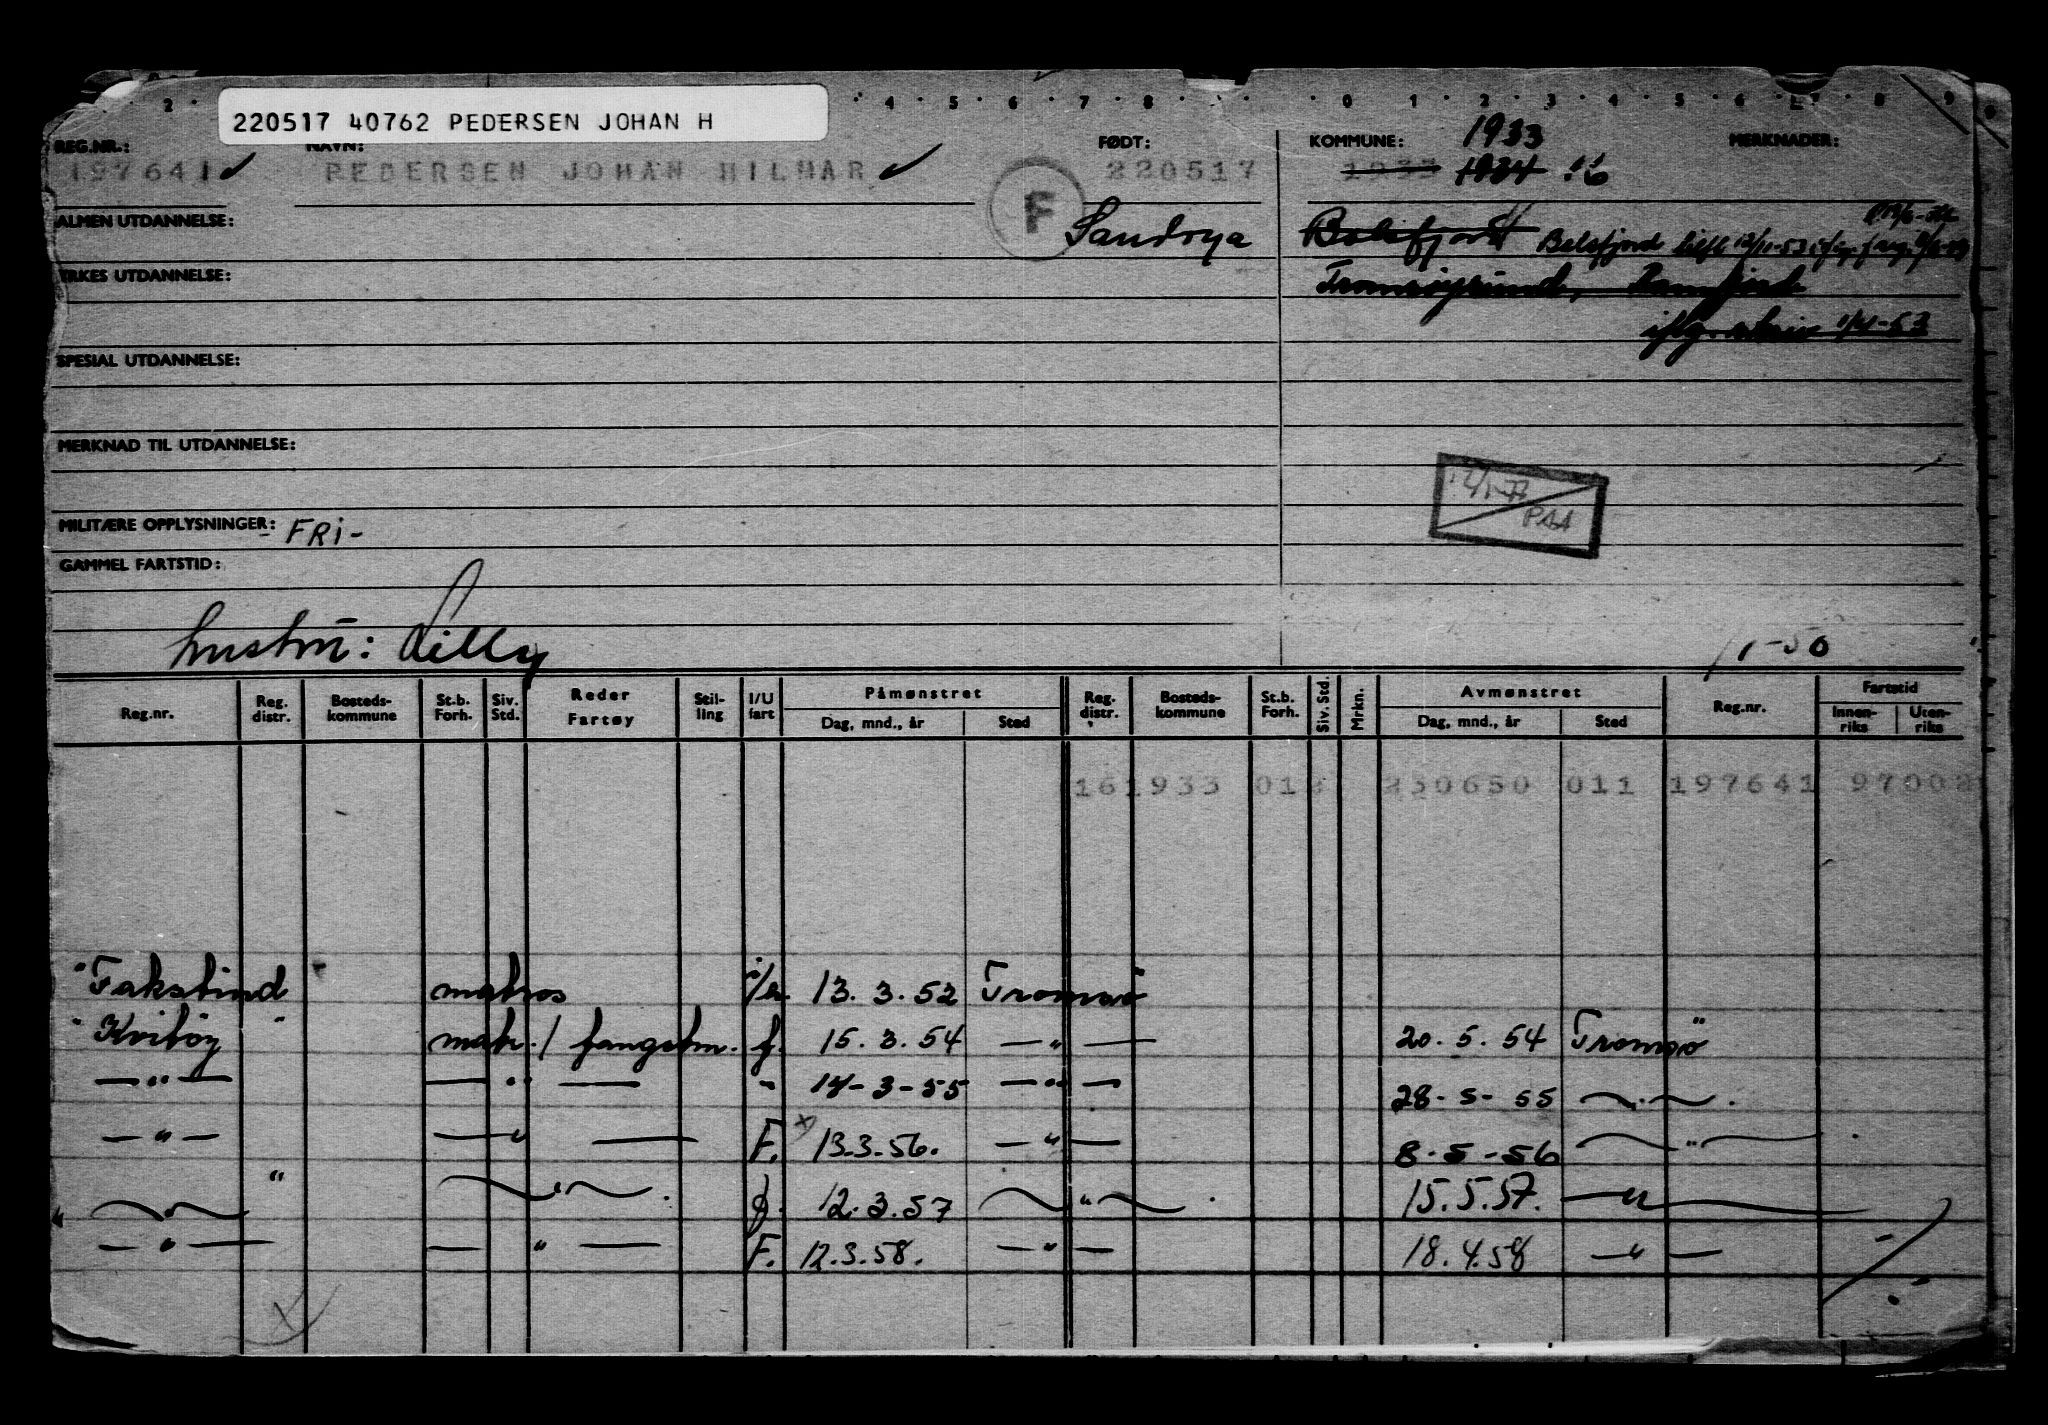 220517 40762 PEDERSEN JOHAN H
REG.NR.: NAVN: FØDT: KOMMUNE: 1933 MERKNADER:
197641 PEDERSEN JOHAN HILMAR F 220517 1934 16
ALMEN UTDANNELSE: Sandøya Balsfjord Balsfjord 12/11-53
YRKES UTDANNELSE: Tromsøysund, Ramfjord
iflg. skriv 1/4-53
SPESIAL UTDANNELSE:
MERKNAD TIL UTDANNELSE:
12/1-77
PAA
MILITÆRE OPPLYSNINGER: - FRI -
GAMMEL FARTSTID:
hustru: Lilly 1-50
Reg.nr. Reg. distr. Bosteds-kommune St.b. Forh. Siv. Std. Reder Fartøy Stil-ling I/U fart Påmønstret Dag, mnd., år Sted Reg. distr. Bosteds-kommune St.b. Forh. Siv. Std. Mrkn. Avmønstret Dag, mnd., år Sted Reg.nr. Fartstid Innen-riks Uten-riks
161933 250650 011 197641 97002
"Fakstind matros 13.3.52 Tromsø
"Kvitøy" matr./fangstm. f. 15.3.54 —"— 20.5.54 Tromsø
—"— —"— - 14-3-55 —"— 28-5-55 —"—
—"— —"— F. 13.3.56. —"— 8-5-56 —"—
—"— —"— f. 12.3.57 —"— 15.5.57. —"—
—"— —"— F. 12.3.58. —"— 18.4.58 —"—